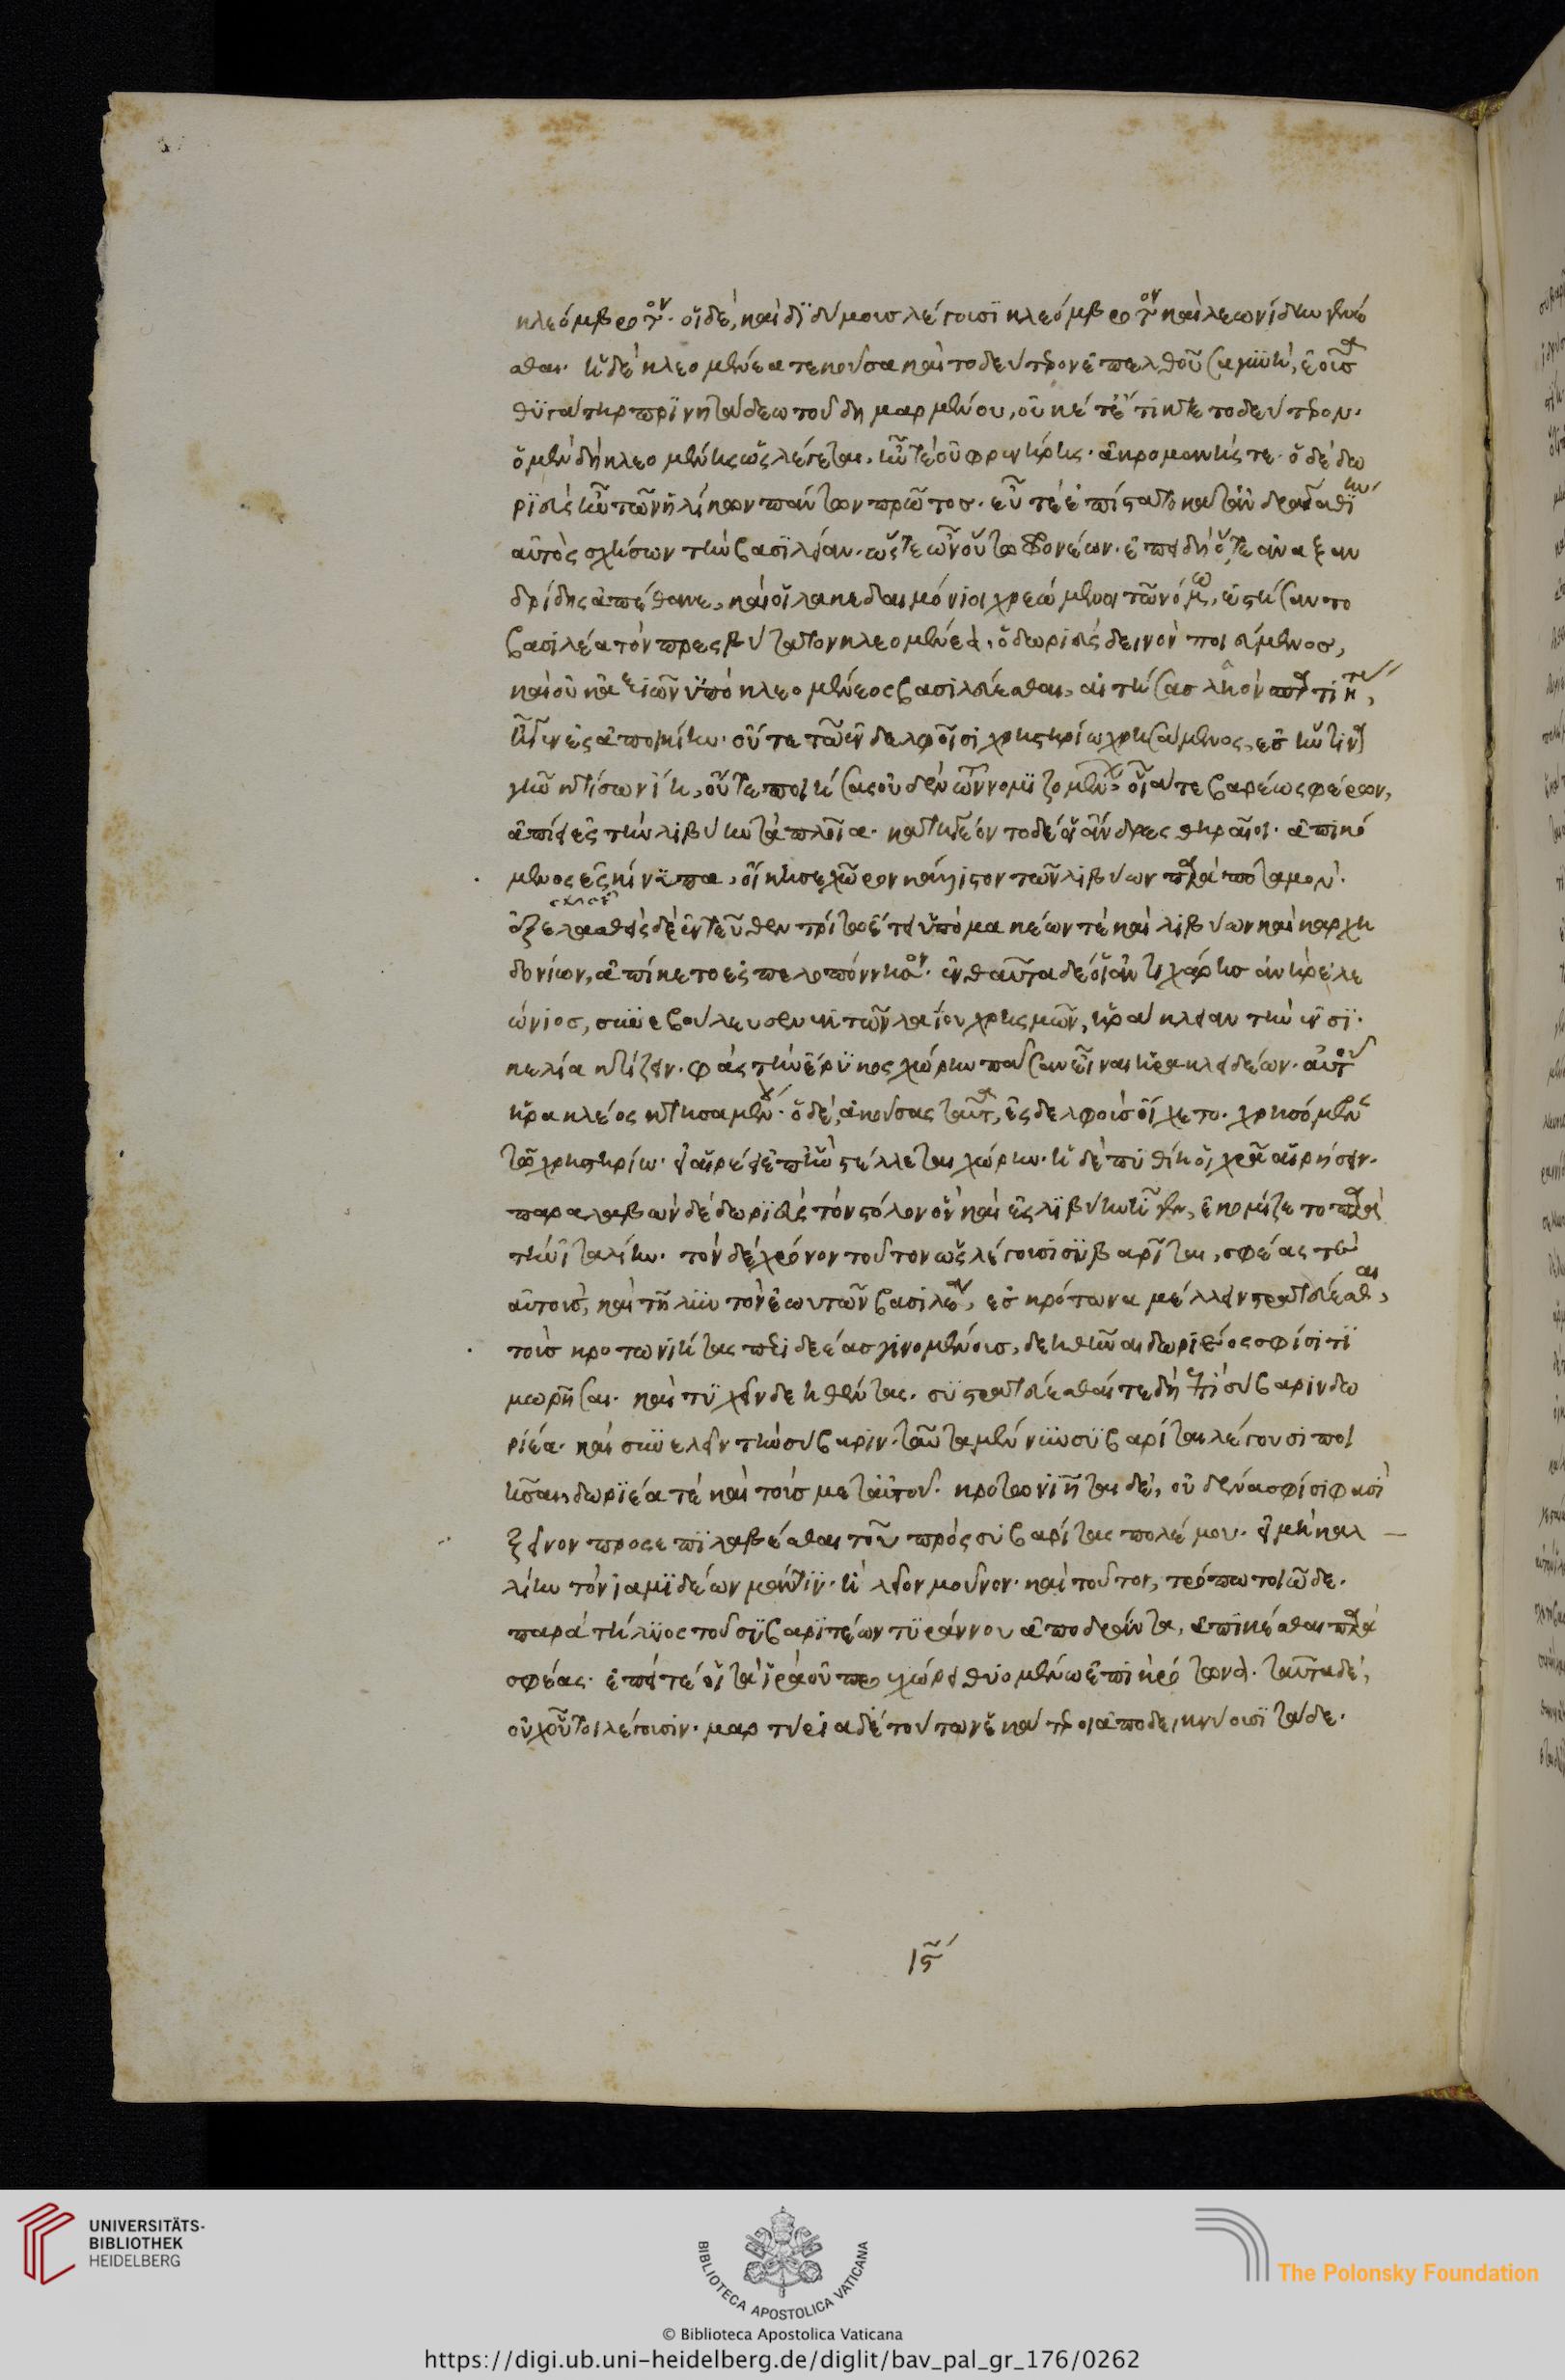 κλεόμβροτον. οἱ δὲ, καὶ διδύμους λέγουσι κλεόμβροτον καὶ λεωνίδην γενέ
σθαι. ἡ δὲ κλεομένεα τεκοῦσα καὶ τὸ δεύτερον ἐπελθοῦσα γυνὴ, ἐοῦσα
θυγάτηρ πρινητάδεω τοῦ δημαρμένου, οὐκέτι ἔτικτε τὸ δεύτερον.
ὁ μὲν δὴ κλεομένης ὡς λέγεται, ἦν τε οὐ φρενήρης. ἀκρομανής τε. ὁ δὲ δω
ριεὺς ἦν τῶν ἡλίκων πάντων πρῶτος. εὖ τε ἐπίστατο κατ' ἀνδραγαθίην
αὐτὸς σχήσων τὴν βασιληίαν. ὥστε ὦν οὕτω φρονέων. ἐπειδὴ ὅ τε ἀναξαν
δρίδης ἀπέθανε, καὶ οἱ λακεδαιμόνιοι χρεώμενοι τῶ νόμω, ἐστήσαντο
βασιλέα τὸν πρεσβύτατον κλεομένεα, ὁ δωριεὺς δεινὸν ποιεύμενος,
καὶ οὐκ ἀξιῶν ὑπὸ κλεομένεος βασιλεύεσθαι, αἰτήσας ληὸν σπαρτιητέων,
ἦγεν ἐς ἀποικίην. οὔτε τῶ ἐν δελφοῖσι χρηστηρίω χρησάμενος, ἐς ἥντινα
γῆν κτίσων ἴη, οὔτε ποιήσας οὐδὲν τῶν νομιζομένων. οἷα τε βαρέως φέρων,
ἀπίει ἐς τὴν λιβύην τὰ πλοῖα. κατηγέοντο δὲ οἱ ἄνδρες θηραῖοι. ἀπικό
μενος ἐς κίνυπα, οἴκησε χῶρον κάλλιστον τῶν λιβύων παρὰ ποταμὸν.
ἐξελαθεὶς δὲ ἐντεῦθεν τρίτω ἔτει ὑπὸ μακέων τε καὶ λιβύων καὶ καρχη
δονίων, ἀπίκετο ἐς πελοπόννησον. ἐνθαῦτα δέ οἱ ἀντιχάρης ἀνὴρ ἐλε
ώνιος, συνεβούλευσεν ἐκ τῶν λαΐου χρησμῶν, ἡράκλειαν τὴν ἐν σι
κελία κτίζειν. φὰς τὴν ἔρυκος χώρην πᾶσαν εἶναι ἡρακλειδέων. αὐτοῦ
ἡρακλέος κτησαμένου. ὁ δὲ, ἀκούσας ταῦτα, ἐς δελφοὺς οἴχετο. χρησόμενος
τῶ χρηστηρίω. εἰ αἱρέει ἐπ' ἣν στέλλεται χώρην. ἡ δὲ πυθίη οἱ χρᾶ αἱρήσειν.
παραλαβὼν δὲ δωριεὺς τὸν στόλον ὃν καὶ ἐς λιβύην ἦγεν, ἐκομίζετο παρὰ
τὴν ἰταλίην. τὸν δὲ χρόνον τοῦτον ὡς λέγουσι συβαρῖται, σφέας τε
αὐτοὺς, καὶ τῆλυν τὸν ἑωυτῶν βασιλέα, ἐς κρότωνα μέλλειν στρατεύεσθαι,
τοὺς κροτωνιήτας περιδεέας γινομένους, δεηθῆναι δωριέος σφίσι τι
μωρῆσαι. καὶ τυχεῖν δεηθέντας. συστρατεύεσθαί τε δὴ ἐπὶ σύβαριν δω
ριέα. καὶ συνελεῖν τὴν σύβαριν. ταῦτα μέν νυν συβαρῖται λέγουσι ποι
ῆσαι, δωριέα τε καὶ τοὺς μετ' αὐτοῦ. κροτωνιῆται δὲ, οὐδένα σφίσι φασὶ
ξεῖνον προσεπιλαβέσθαι τοῦ πρὸς συβαρίτας πολέμου. εἰ μὴ καλ
λίην τὸν ἰαμιδέων μάντιν. ἠλεῖον μοῦνον. καὶ τοῦτον, τρόπω τοιῶδε.
παρὰ τήλυος τοῦ συβαριτέων τυράννου ἀποδράντα, ἀπικέσθαι παρὰ
σφέας. ἐπεί τέ οἱ τὰ ἱρὰ οὐ προχώρει θυομένω ἐπὶ κρότωνα. ταῦτα δὲ,
οὐχ οὗτοι λέγουσιν. μαρτύρια δὲ τούτων ἑκάτεροι ἀποδεικνύουσι τάδε.
ις
UNIVERSITÄTS-
BIBLIOTHEK
HEIDELBERG
BIBLIOTECA APOSTOLICA VATICANA
The Polonsky Foundation
© Biblioteca Apostolica Vaticana
https://digi.ub.uni-heidelberg.de/diglit/bav_pal_gr_176/0262